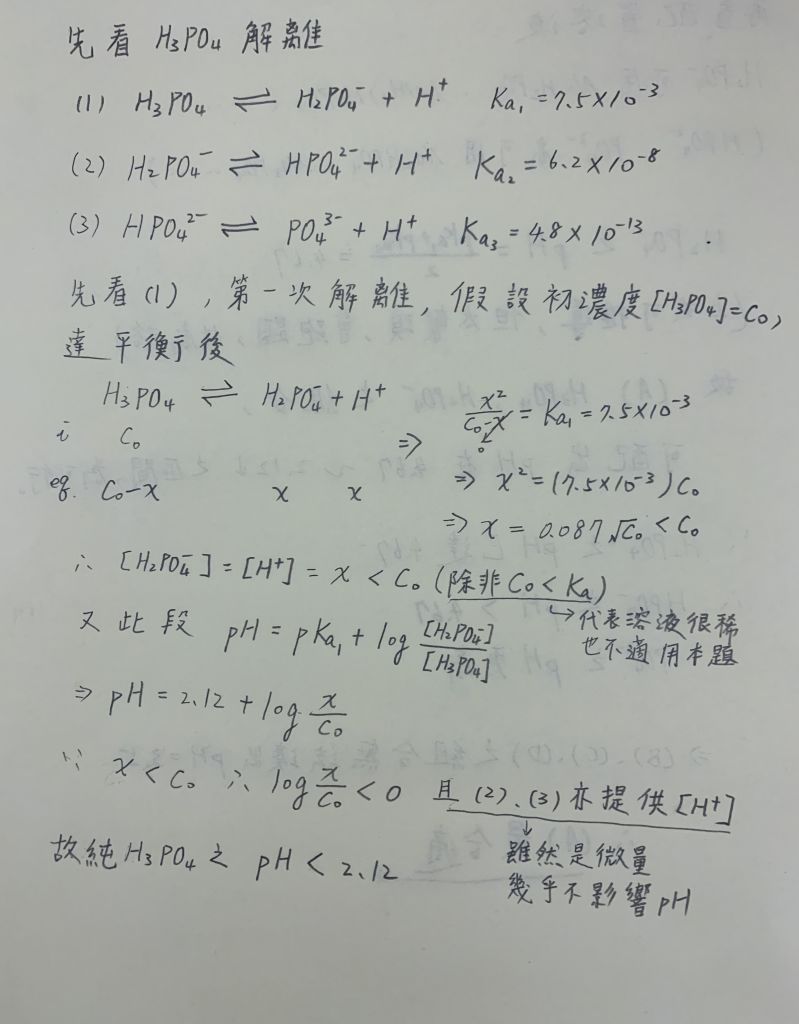 先看 H₃PO₄ 解離
(1) H₃PO₄ ⇌ H₂PO₄⁻ + H⁺ Ka₁ = 7.5×10⁻³
(2) H₂PO₄⁻ ⇌ HPO₄²⁻ + H⁺ Ka₂ = 6.2×10⁻⁸
(3) HPO₄²⁻ ⇌ PO₄³⁻ + H⁺ Ka₃ = 4.8×10⁻¹³
先看(1),第一次解離,假設初濃度[H₃PO₄]=C₀,
達平衡後
H₃PO₄ ⇌ H₂PO₄⁻ + H⁺
i C₀
eq. C₀-x x x
⇒ x²/(C₀-x) = Ka₁ = 7.5×10⁻³
0
⇒ x² = (7.5×10⁻³)C₀
⇒ x = 0.087√C₀ < C₀
∴ [H₂PO₄⁻] = [H⁺] = x < C₀ (除非 C₀ < Ka)
↳ 代表溶液很稀
也不適用本題
又此段 pH = pKa₁ + log [H₂PO₄⁻]/[H₃PO₄]
⇒ pH = 2.12 + log x/C₀
∵ x < C₀ ∴ log x/C₀ < 0 且(2)、(3)亦提供[H⁺]
↓
雖然是微量
幾乎不影響pH
故純H₃PO₄之 pH < 2.12